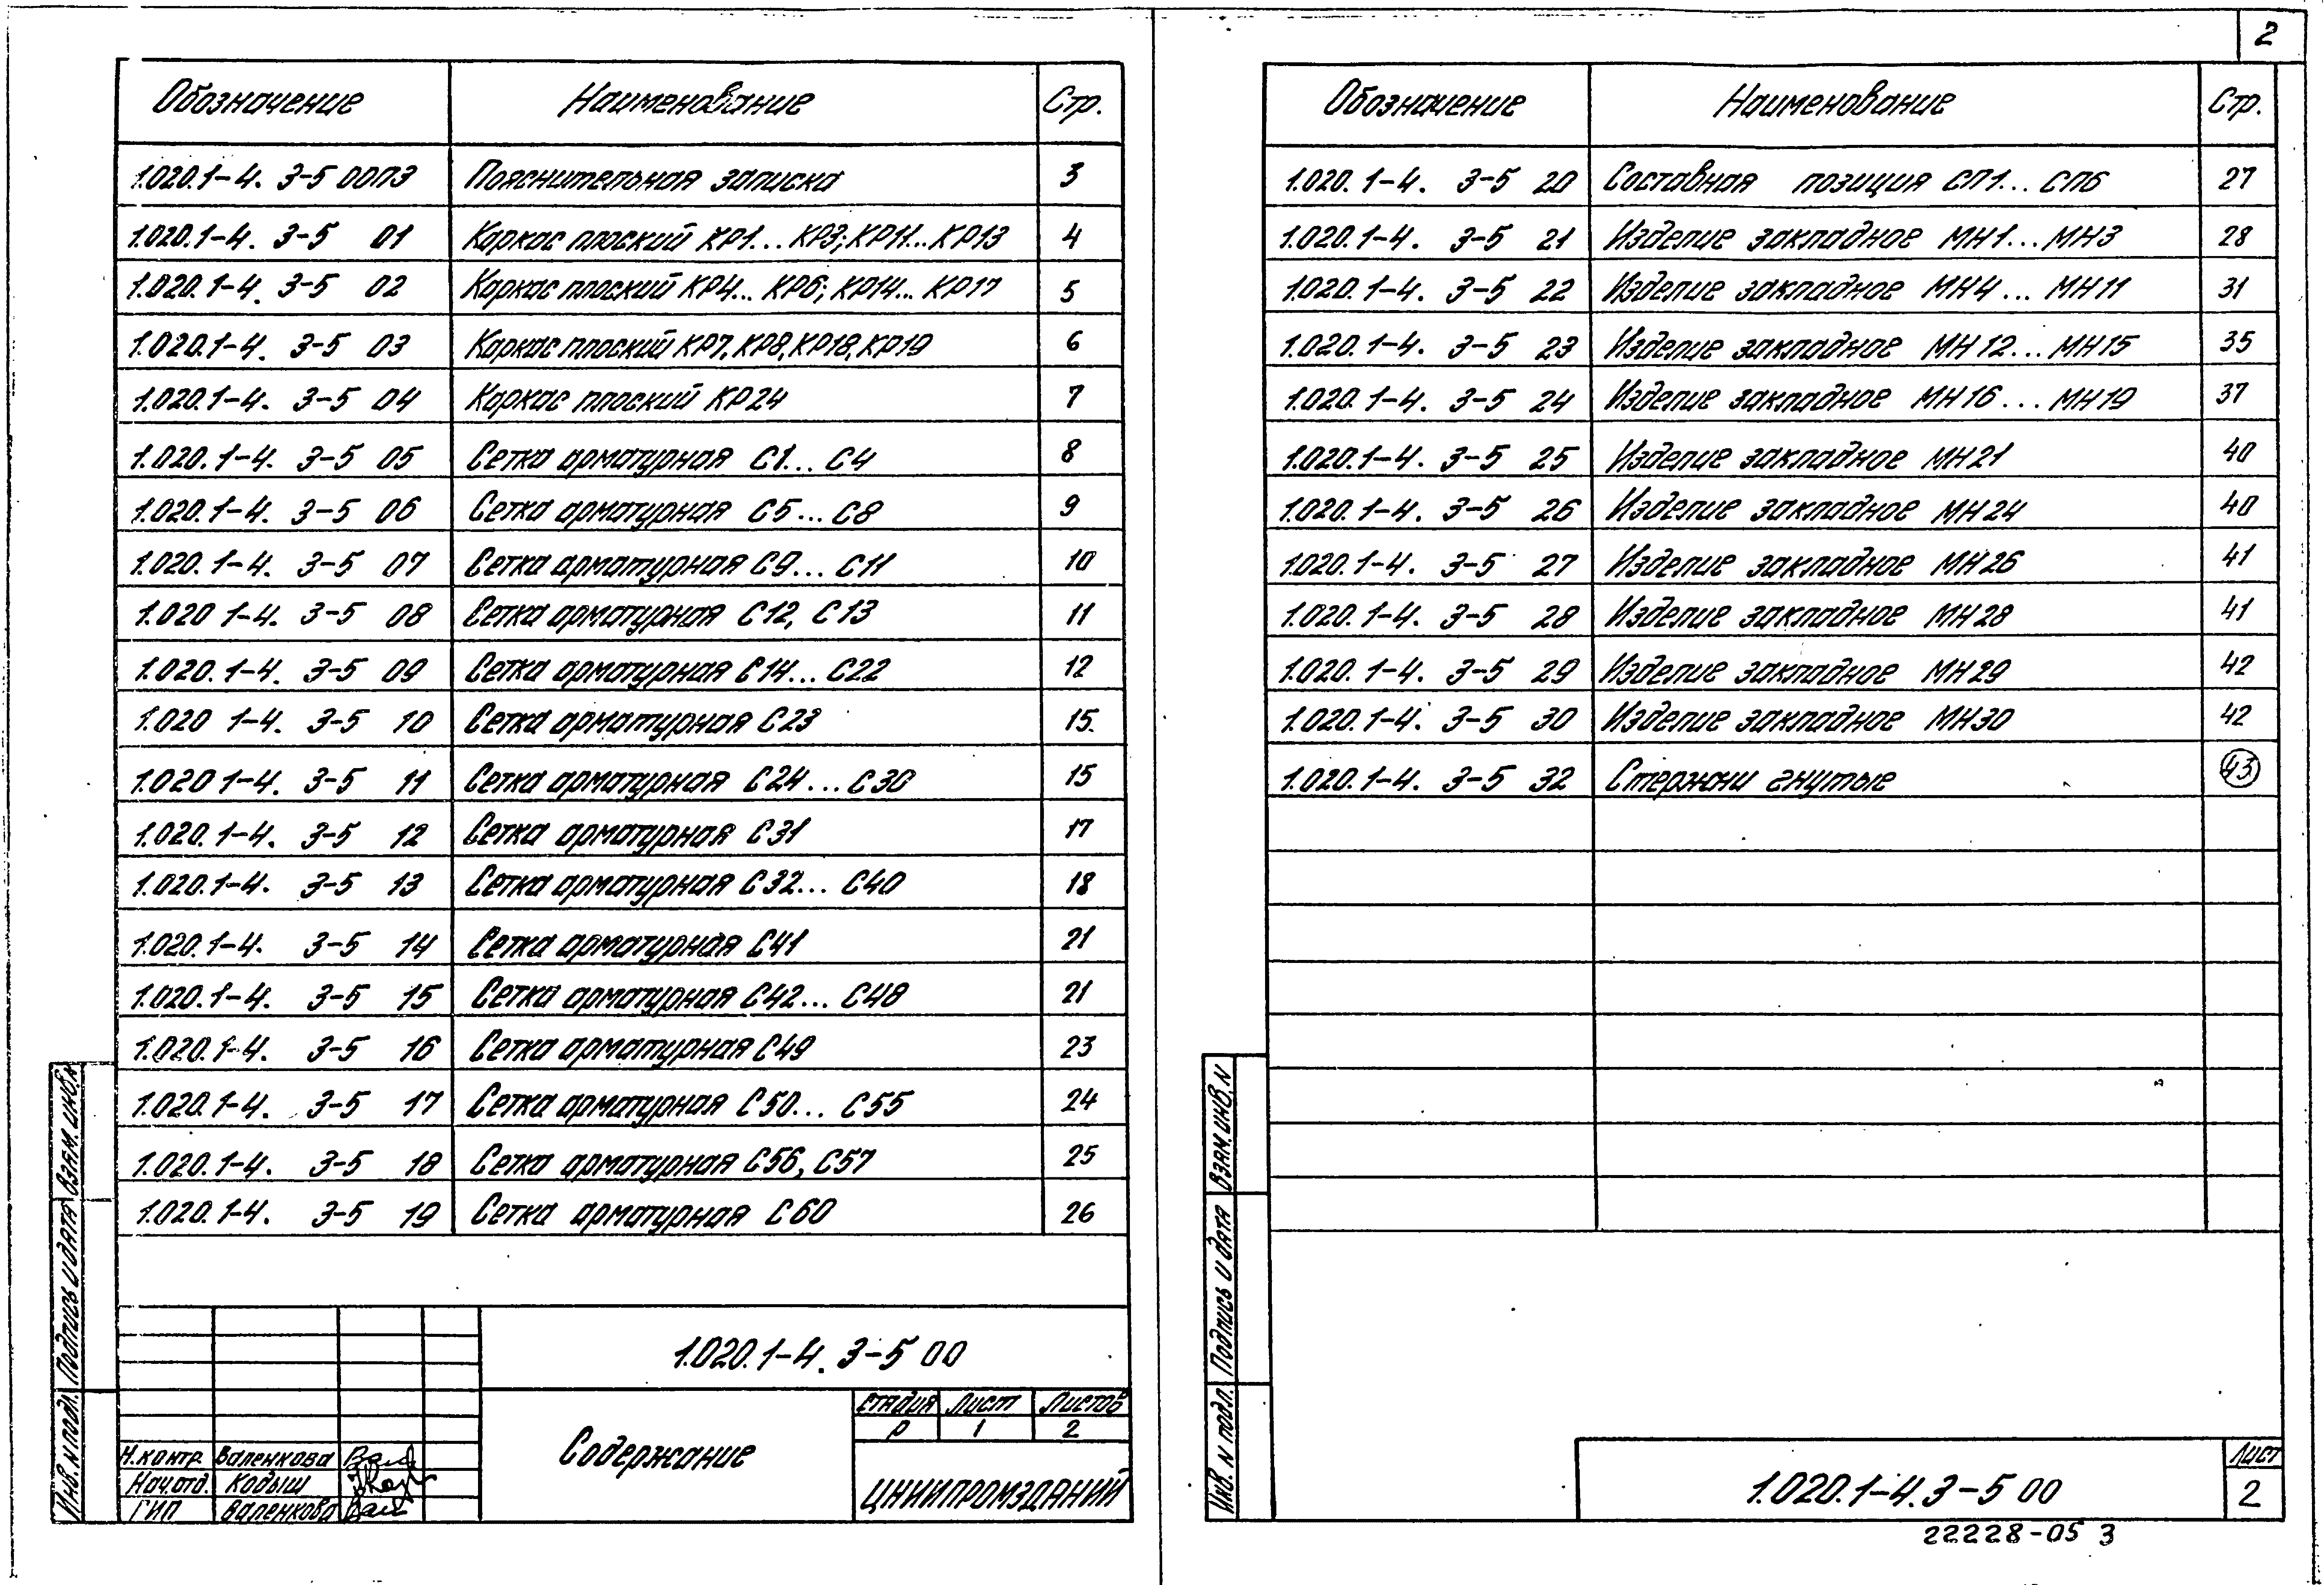 2
Обозначение Наименование Стр.
1.020.1-4. 3-5 00ПЗ Пояснительная записка 3
1.020.1-4. 3-5 01 Каркас плоский КР1... КР3; КР11... КР13 4
1.020.1-4. 3-5 02 Каркас плоский КР4... КР6; КР14... КР17 5
1.020.1-4. 3-5 03 Каркас плоский КР7, КР8, КР18, КР19 6
1.020.1-4. 3-5 04 Каркас плоский КР24 7
1.020.1-4. 3-5 05 Сетка арматурная С1... С4 8
1.020.1-4. 3-5 06 Сетка арматурная С5... С8 9
1.020.1-4. 3-5 07 Сетка арматурная С9... С11 10
1.020 1-4. 3-5 08 Сетка арматурная С12, С13 11
1.020.1-4. 3-5 09 Сетка арматурная С14... С22 12
1.020 1-4. 3-5 10 Сетка арматурная С23 15
1.020 1-4. 3-5 11 Сетка арматурная С24... С30 15
1.020.1-4. 3-5 12 Сетка арматурная С31 17
1.020.1-4. 3-5 13 Сетка арматурная С32... С40 18
1.020.1-4. 3-5 14 Сетка арматурная С41 21
1.020.1-4. 3-5 15 Сетка арматурная С42... С48 21
1.020.1-4. 3-5 16 Сетка арматурная С49 23
1.020.1-4. 3-5 17 Сетка арматурная С50... С55 24
1.020.1-4. 3-5 18 Сетка арматурная С56, С57 25
1.020.1-4. 3-5 19 Сетка арматурная С60 26
1.020.1-4. 3-5 00
Содержание
Стадия Лист Листов
Р 1 2
ЦНИИПРОМЗДАНИЙ
Н.контр. Валенкова Вал
Нач.отд. Кодыш
ГИП Валенкова Вал
Взам. инв. N
Подпись и дата
Инв. N подл.
Обозначение Наименование Стр.
1.020.1-4. 3-5 20 Составная позиция СП1... СП6 27
1.020.1-4. 3-5 21 Изделие закладное МН1... МН3 28
1.020.1-4. 3-5 22 Изделие закладное МН4... МН11 31
1.020.1-4. 3-5 23 Изделие закладное МН12... МН15 35
1.020.1-4. 3-5 24 Изделие закладное МН16... МН19 37
1.020.1-4. 3-5 25 Изделие закладное МН21 40
1.020.1-4. 3-5 26 Изделие закладное МН24 40
1.020.1-4. 3-5 27 Изделие закладное МН26 41
1.020.1-4. 3-5 28 Изделие закладное МН28 41
1.020.1-4. 3-5 29 Изделие закладное МН29 42
1.020.1-4. 3-5 30 Изделие закладное МН30 42
1.020.1-4. 3-5 32 Стержни гнутые 43
Взам. инв. N
Подпись и дата
Инв. N подл.
1.020.1-4.3-5 00
Лист
2
22228-05 3